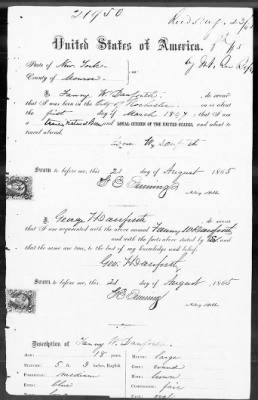 21950
United States of America.
State of New York
County of Monroe
I Fanny W. Danforth, do swear
that I was born in the City of Rochester on or about
the first day of March 1847; that I am
a true, native Born and LOYAL CITIZEN OF THE UNITED STATES, and about to
travel abroad.
Sworn to before me this 21 day of August 1865
Notary Public
I George H Danforth, do swear
that I am acquainted with the above named Fanny W Danforth
and with the facts above stated by her and that
the same are true, to the best of my knowledge and belief.
Geo. H Danforth
Sworn to before me this 21 day of August 1865
Notary Public
Description of Fanny W. Danforth
AGE: 18 years. MOUTH: large
STATURE: 5 a 3 inches, English CHIN: round
FOREHEAD: medium HAIR: brown
EYES: blue COMPLEXION: fair
FACE: oval